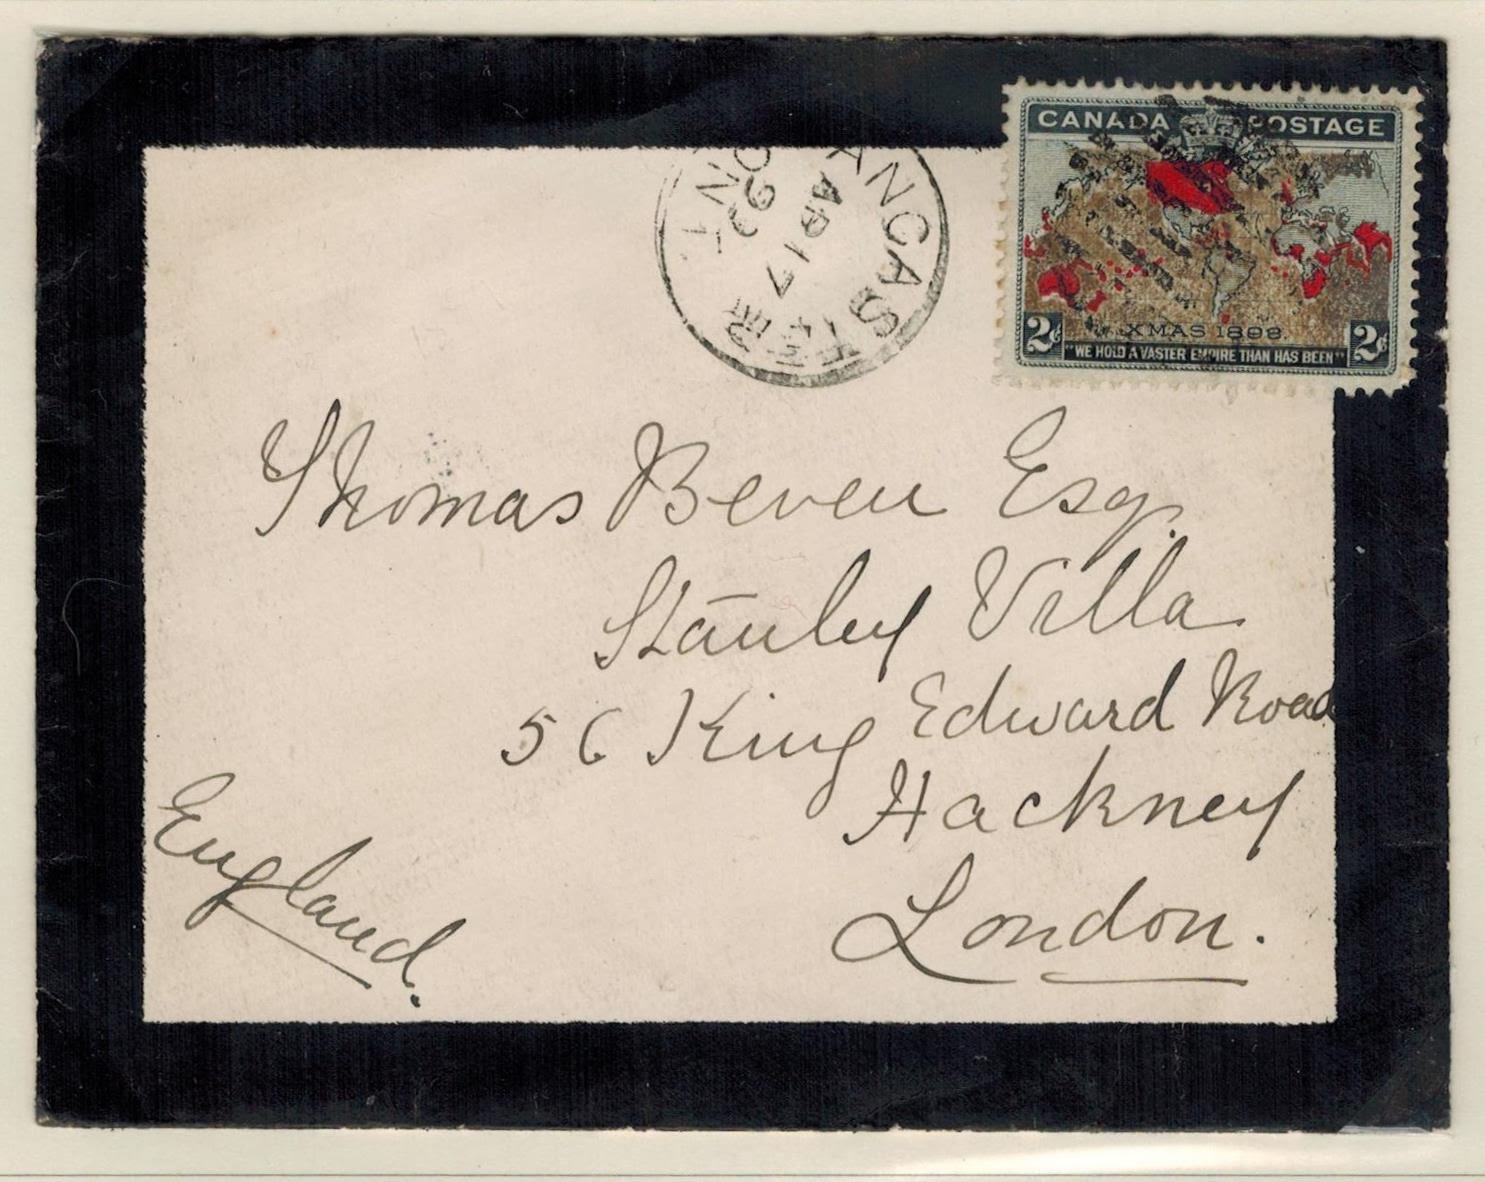 CANADA POSTAGE
XMAS 1898.
2c 2c
"WE HOLD A VASTER EMPIRE THAN HAS BEEN"
LANCASTER
ONT
AP 17
99
Thomas Beven Esq.
Stanley Villa
56 King Edward Road
Hackney
London.
England.